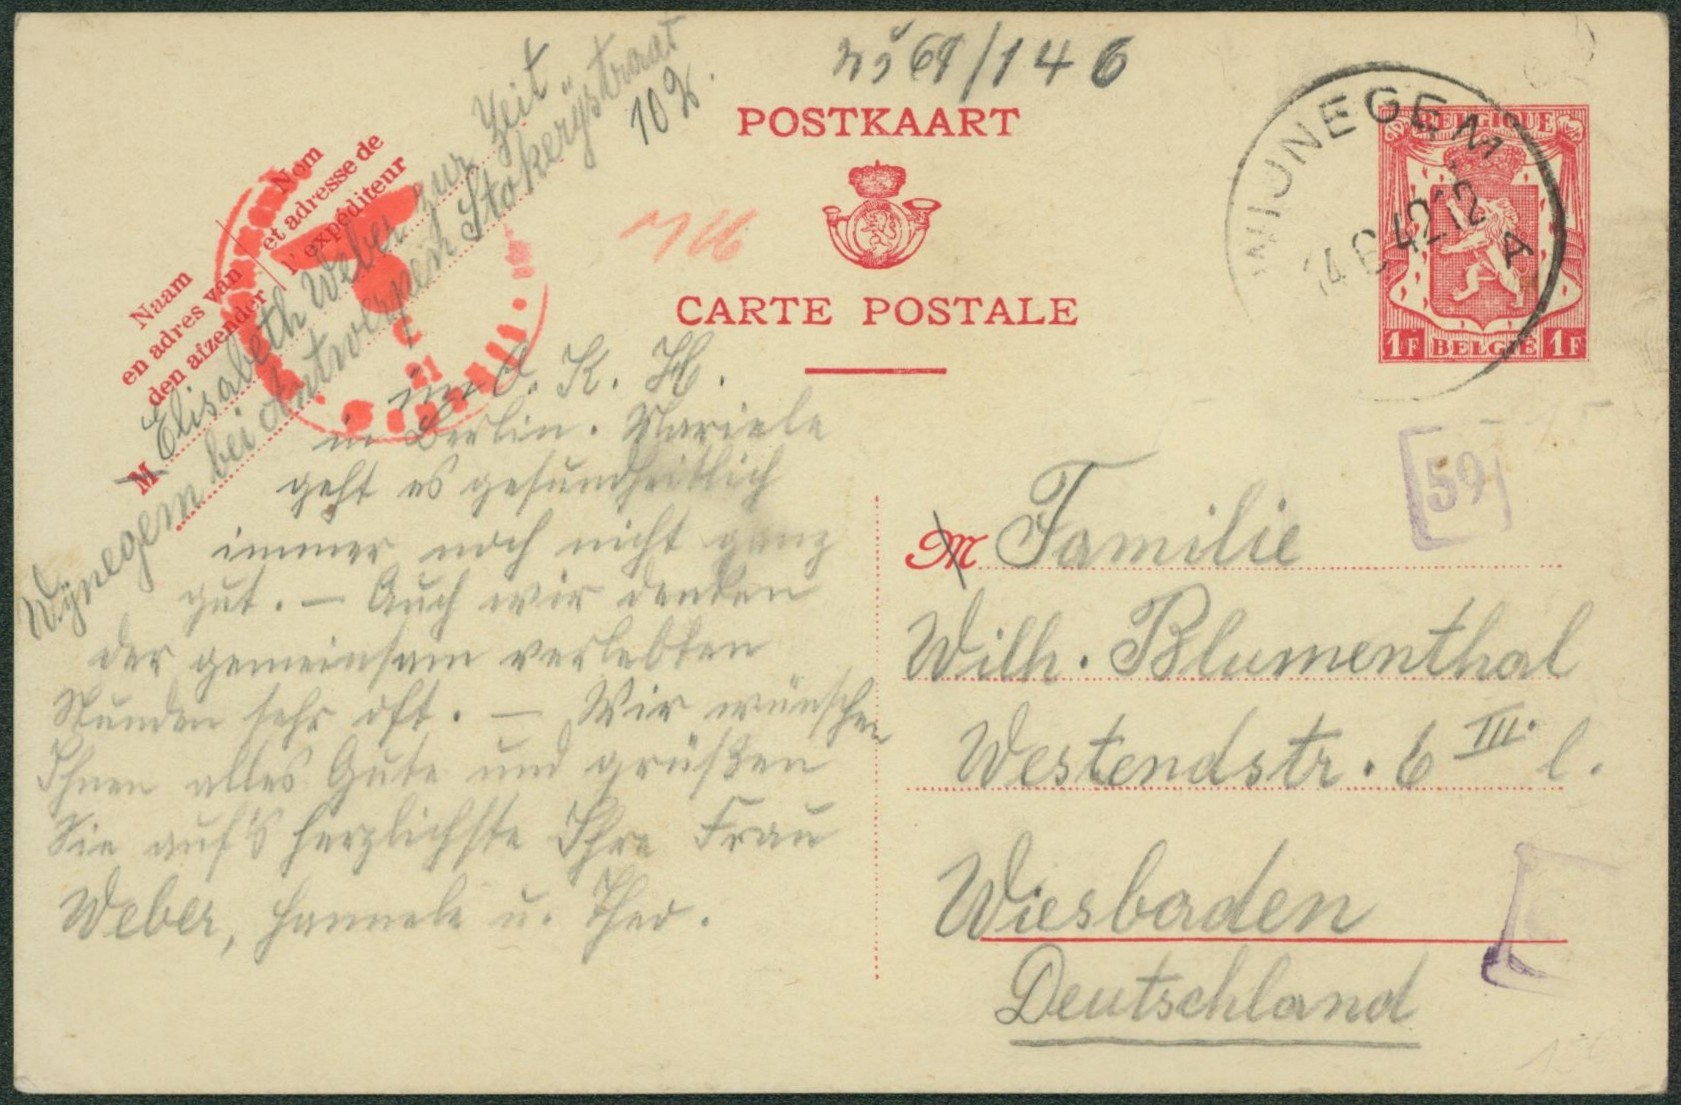 POSTKAART
CARTE POSTALE
Nom
et adresse de
l'expéditeur
Naam
en adres van
den afzender
M
Elisabeth Weber zur Zeit
Wÿnegem bei Antwerpen Stokerÿstraat
10
WIJNEGEM
A
BELGIQUE
1F BELGIE 1F
59
in d. K. H.
in Berlin. Mariele
geht es gesundheitlich
immer noch nicht ganz
gut. — Auch wir denken
der gemeinsam verlebten
Stunden sehr oft. — Wir wünschen
Ihnen alles Gute und grüßen
Sie auf's herzlichste Ihre Frau
Weber, Hannele u. Theo.
M Familie
Wilh. Blumenthal
Westendstr. 6 III. l.
Wiesbaden
Deutschland